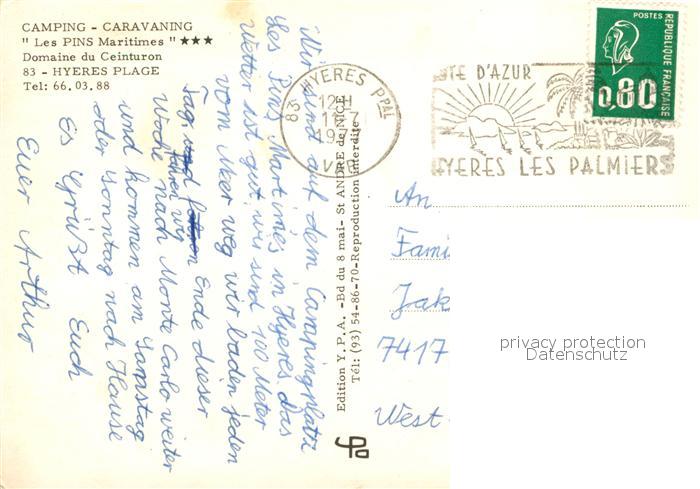 CAMPING - CARAVANING
" Les PINS Maritimes " ★★★
Domaine du Ceinturon
83 - HYERES PLAGE
Tel: 66.03.88
Wir sind auf dem Campingplatz
Les Pins Martimes in Hyeres. das
Wetter ist gut. wir sind 100 Meter
vom Meer weg wir baden jeden
Tag. Ende dieser
Woche fahren wir nach Monte Carlo weiter
und kommen am Samstag
oder Sonntag nach Hause
Es Grüßt Euch
Euer Arthur
Edition Y.P.A. -Bd du 8 mai- St ANDRE de NICE
Tél: (93) 54-86-70-Reproduction interdite
83 HYERES PPAL
12H
11-7
VAR
COTE D'AZUR
HYERES LES PALMIERS
POSTES
REPUBLIQUE FRANÇAISE
0,80
An
Fami
Jak
7417
West
privacy protection
Datenschutz